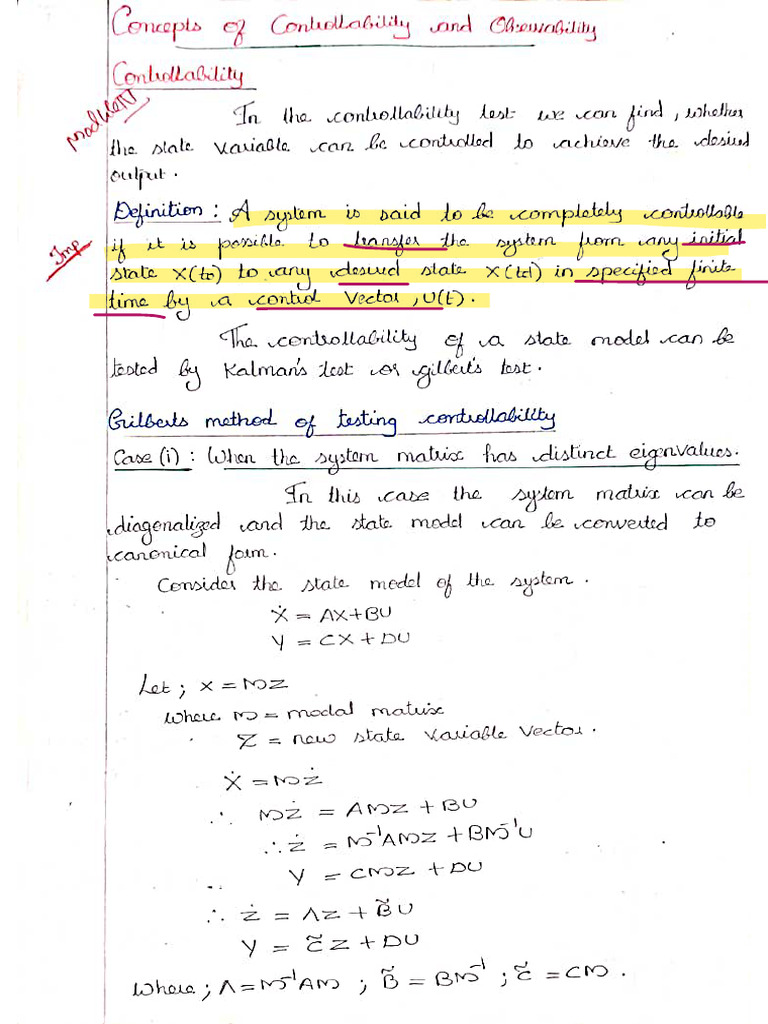 Concepts of Controllability and Observability
Controllability
Module IV
In the controllability test we can find, whether
the state variable can be controlled to achieve the desired
output.
Definition : A system is said to be completely controllable
Imp
if it is possible to transfer the system from any initial
state X(to) to any desired state X(td) in specified finite
time by a control vector, U(t).
The controllability of a state model can be
tested by Kalman's test or gilbert's test.
Gilberts method of testing controllability
Case (i) : When the system matrix has distinct eigenvalues.
In this case the system matrix can be
diagonalized and the state model can be converted to
canonical form.
Consider the state model of the system.
Ẋ = AX+BU
Y = CX + DU
Let ; X = MZ
Where M = modal matrix
Z = new state variable vector.
Ẋ = MŻ
∴ MŻ = AMZ + BU
∴ Ż = M⁻¹AMZ + BM⁻¹U
Y = CMZ + DU
∴ Ż = ΛZ + B̃U
Y = C̃Z + DU
Where ; Λ = M⁻¹AM ; B̃ = BM⁻¹ ; C̃ = CM .